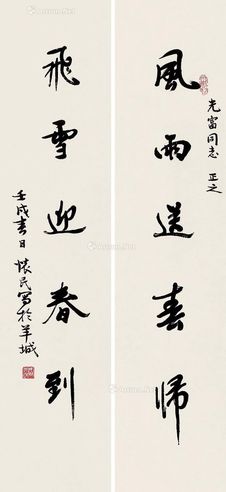 光富同志 正之
風雨送春歸
飛雪迎春到
壬戌春日 懷民寫於羊城